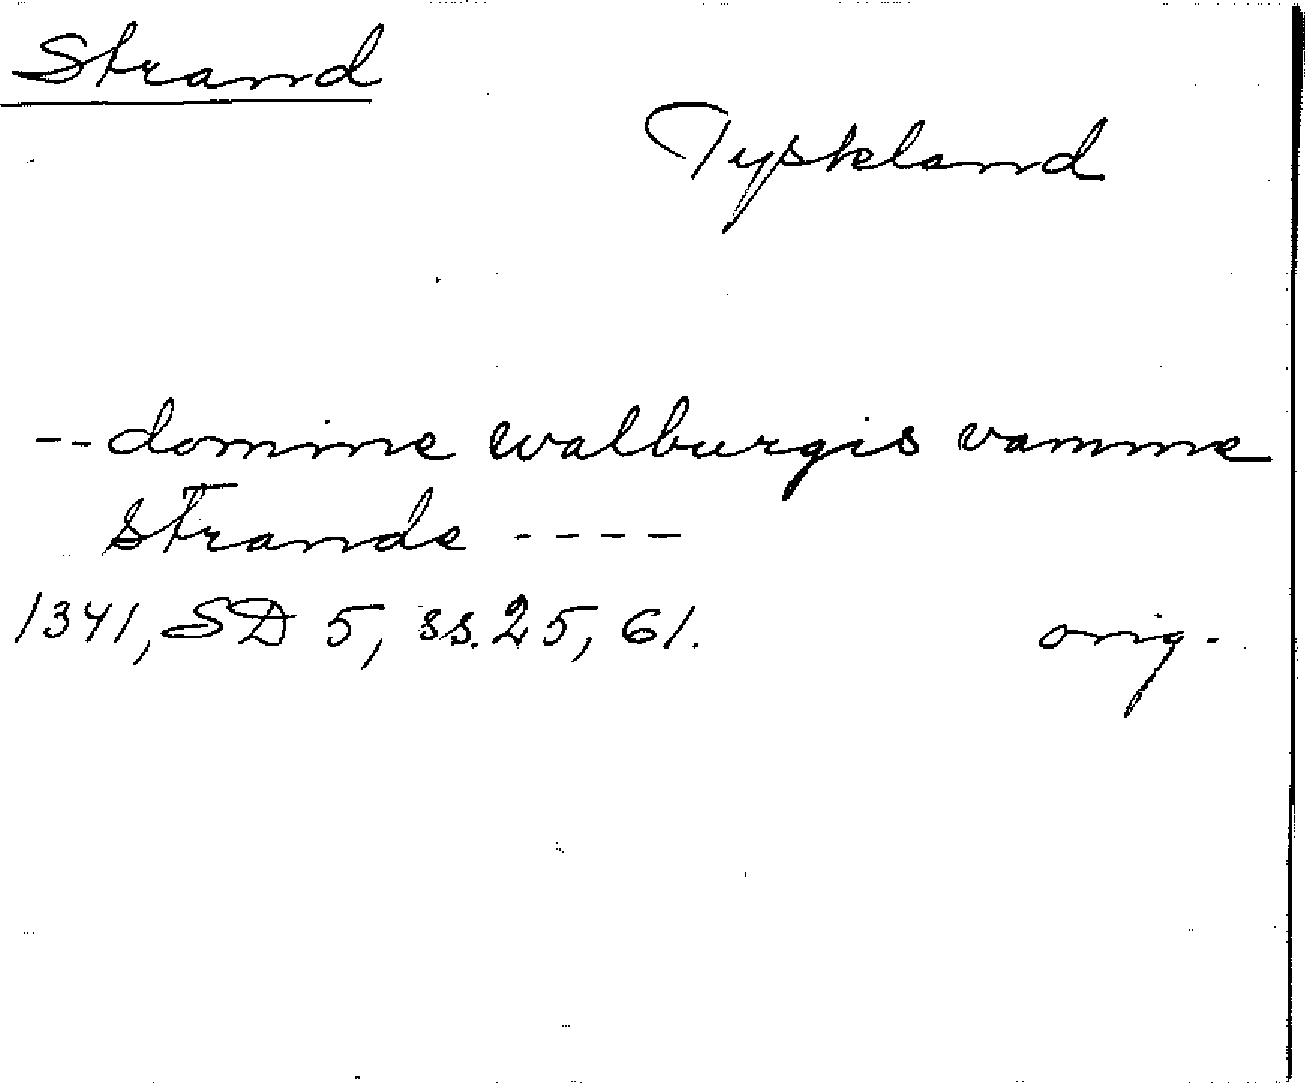 Strand
Tyskland
-- domine walburgis vamme
strande ----
1341, SD 5, ss. 25, 61. orig.